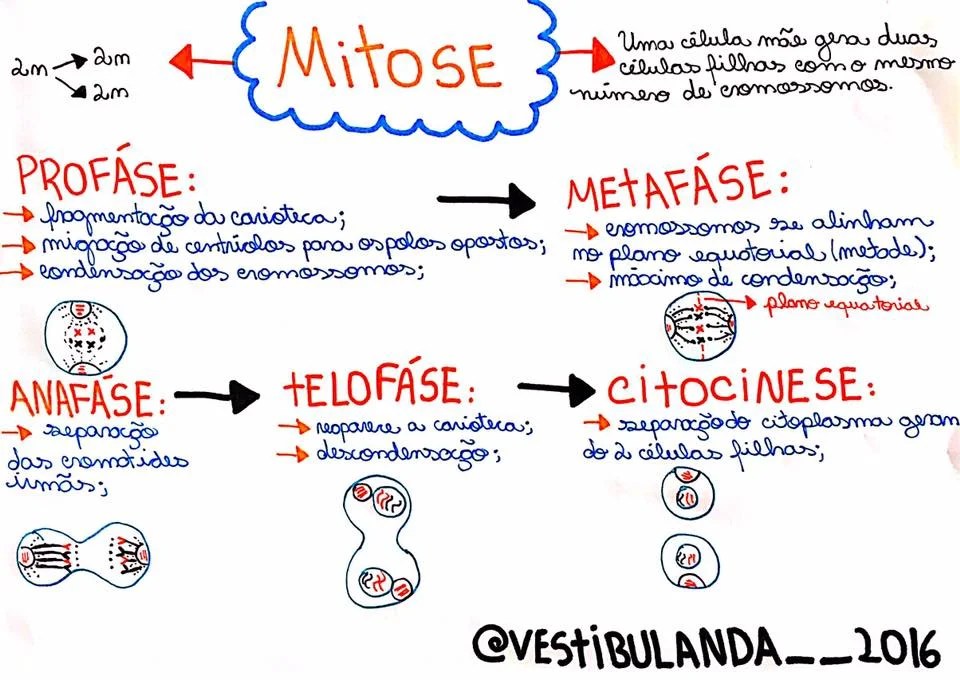 Mitose
2n → 2n
2n
Uma célula mãe gera duas
células filhas com o mesmo
número de cromossomos.
PROFÁSE:
→ fragmentação da carioteca;
→ migração de centríolos para os polos opostos;
→ condensação dos cromossomos;
METAFÁSE:
→ cromossomos se alinham
no plano equatorial (metade);
→ máximo de condensação;
plano equatorial
ANAFÁSE:
→ separação
das cromátides
irmãs;
TELOFÁSE:
→ reaparece a carioteca;
→ descondensação;
CITOCINESE:
→ separação do citoplasma geran
do 2 células filhas;
@VESTIBULANDA__2016